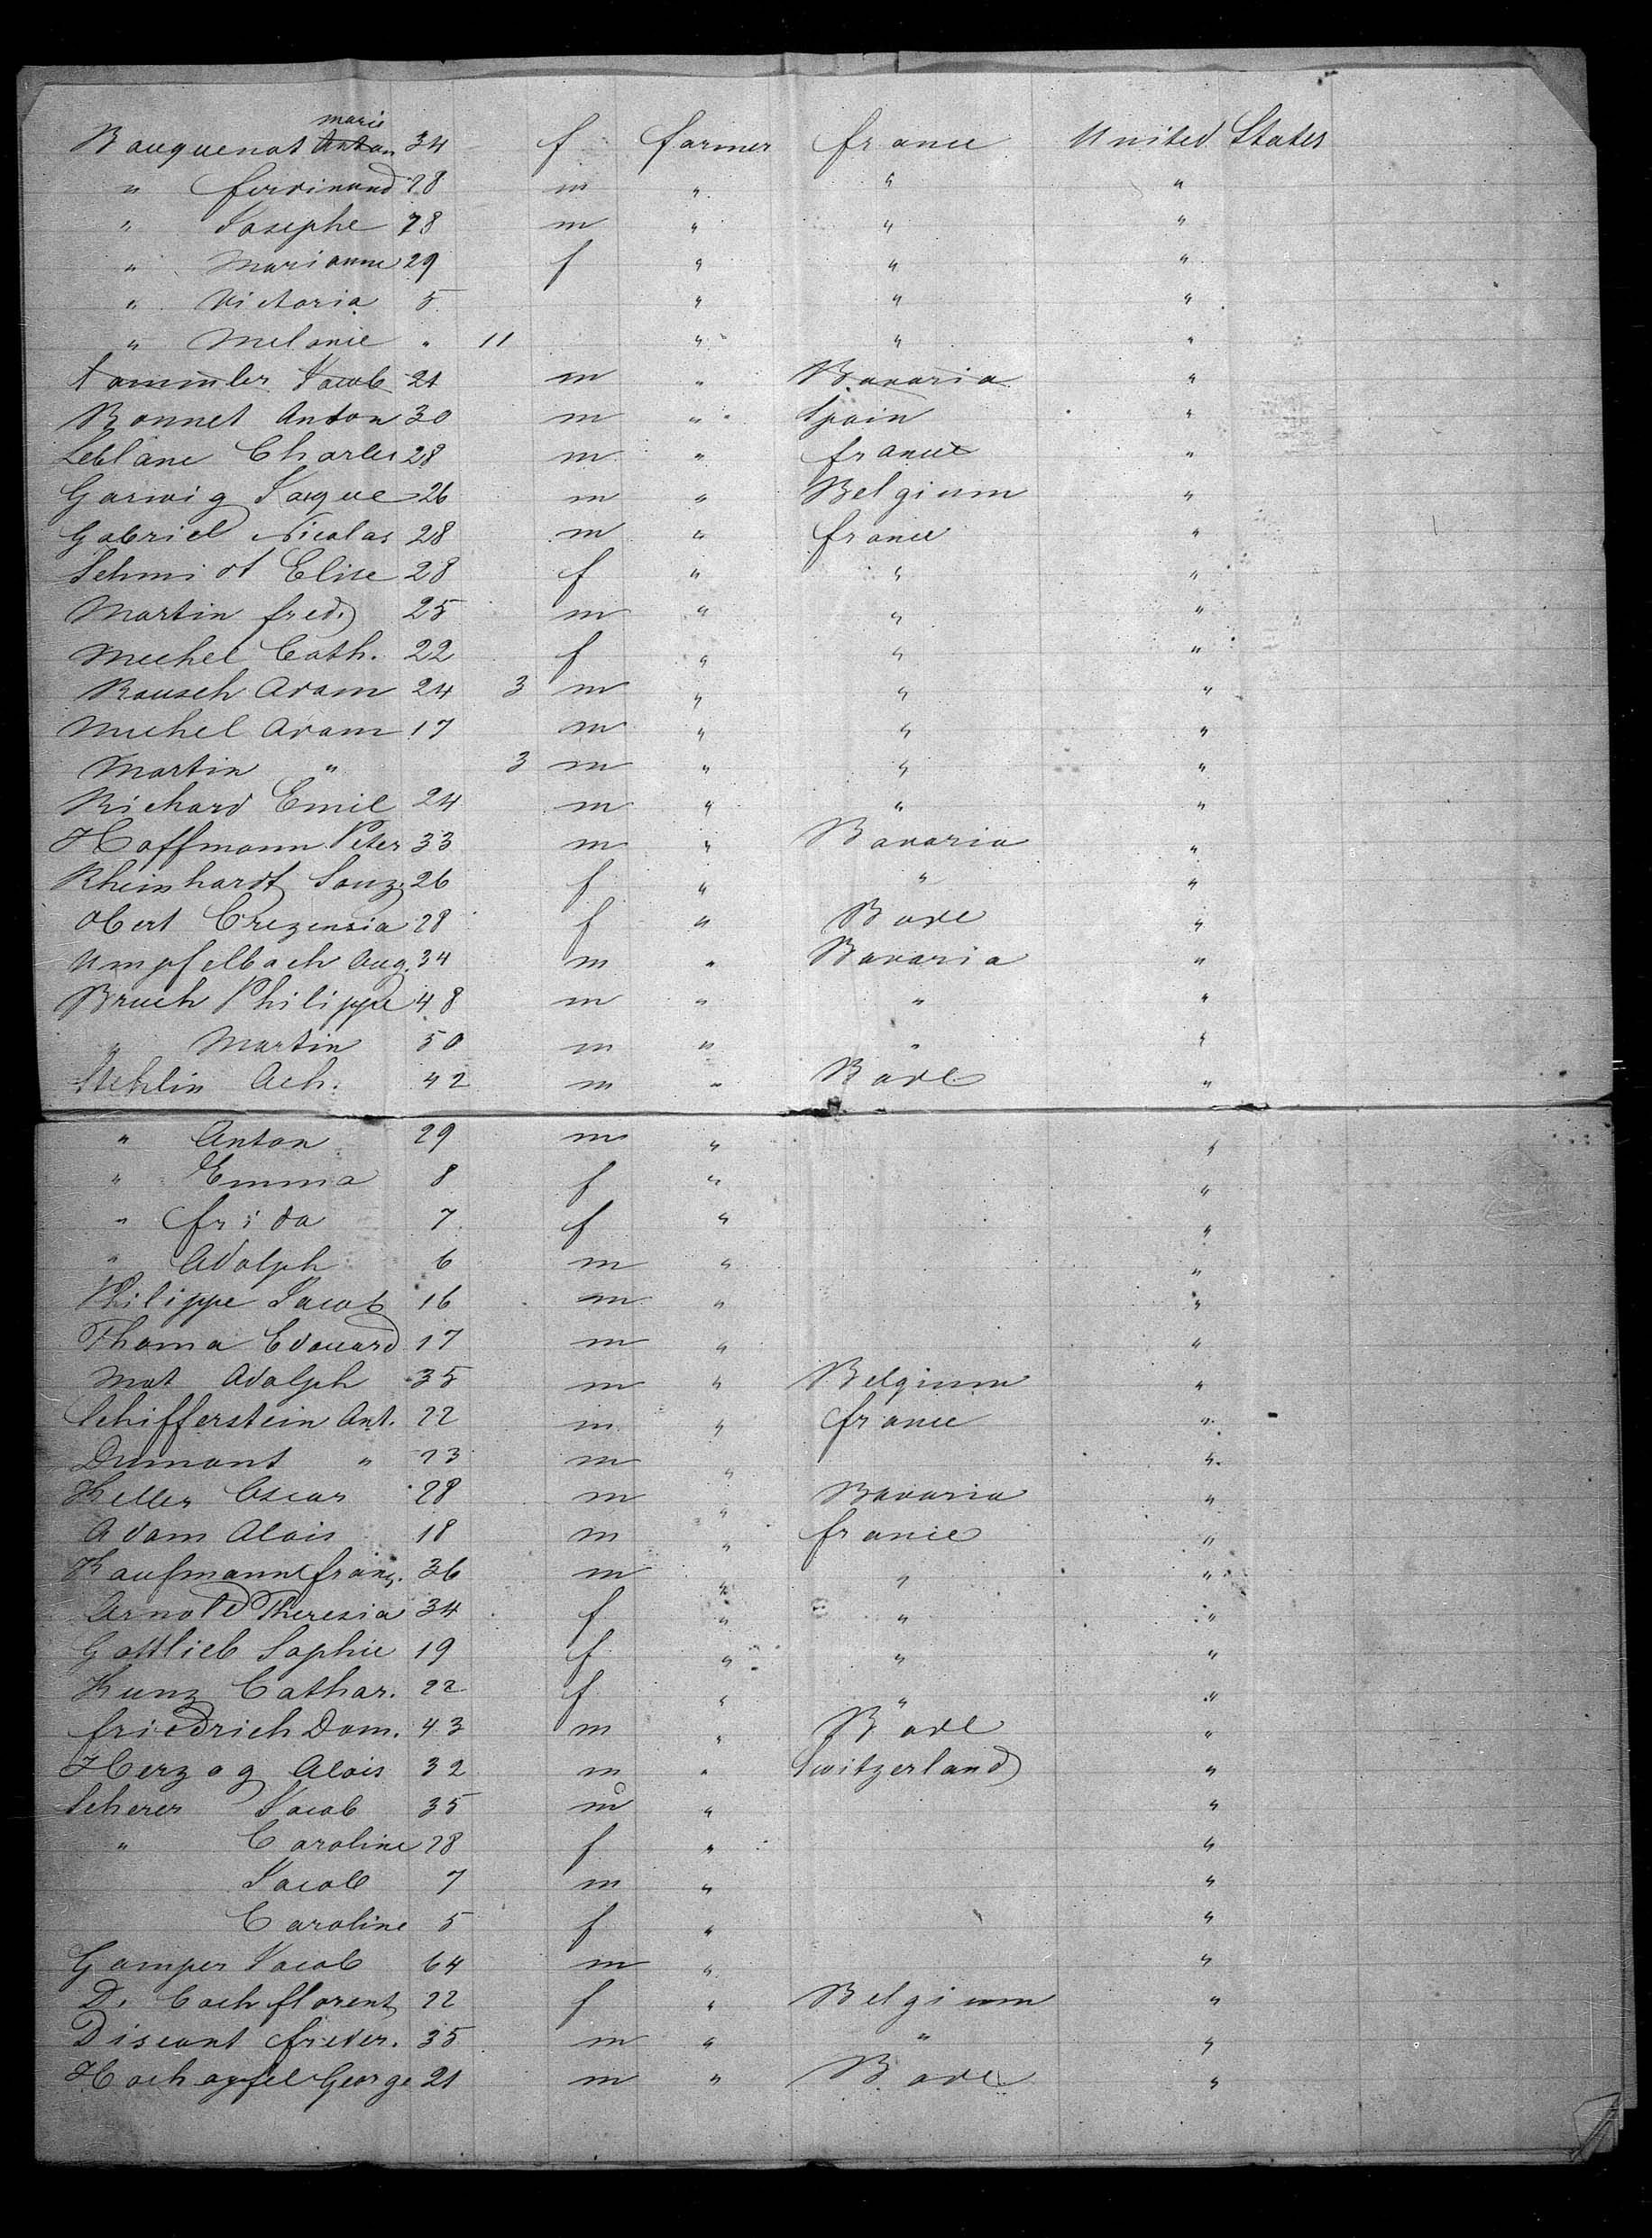 marie
Bauquenot Anton 34 f farmer france United States
" ferdinand 28 m " " "
" Josephe 78 m " " "
" Marianne 29 f " " "
" Victoria 5 " " "
" Melanie " 11 " " "
Jacob 21 m " Bavaria "
Bonnet Anton 30 m " Spain "
Leblanc Charles 28 m " france "
Garwig Jaque 26 m " Belgium "
Gabriel Nicolas 28 m " france "
Schmidt Elise 28 f " " "
Martin fred. 25 m " " "
Michel Cath. 22 f " " "
Rausch Adam 24 3 m " " "
Michel Adam 17 m " " "
Martin " 3 m " " "
Richard Emil 24 m " " "
Hoffmann Peter 33 m " Bavaria "
Rheinhardt 26 f " " "
Obert Crezensia 28 f " Bade "
Umpfelbach Aug. 34 m " Bavaria "
Bruch Philippe 48 m " " "
" Martin 50 m " " "
Stehlin Ach. 42 m " Bade "
" Anton 29 m " "
" Emma 8 f " "
" frida 7 f " "
" Adolph 6 m " "
Philippe Jacob 16 m " "
Thoma Edouard 17 m " "
Mat Adolph 35 m " Belgium "
Schifferstein Ant. 22 m " france "
Dumont " 23 m " "
Keller Oscar 28 m " Bavaria "
Adam Alois 18 m " france "
Kaufmann franz. 36 m " " "
Arnold Theresia 34 f " " "
Gottlieb Sophie 19 f " " "
Kunz Cathar. 22 f " " "
friedrich Dom. 43 m " Bade "
Herzog Alois 32 m " Switzerland "
Scherer Jacob 35 m " "
" Caroline 28 f " "
Jacob 7 m " "
Caroline 5 f " "
Gamper Jacob 64 m " "
D. Coch florent 22 f " Belgium "
Discant freder. 35 m " " "
Hochapfel George 21 m " Bade "